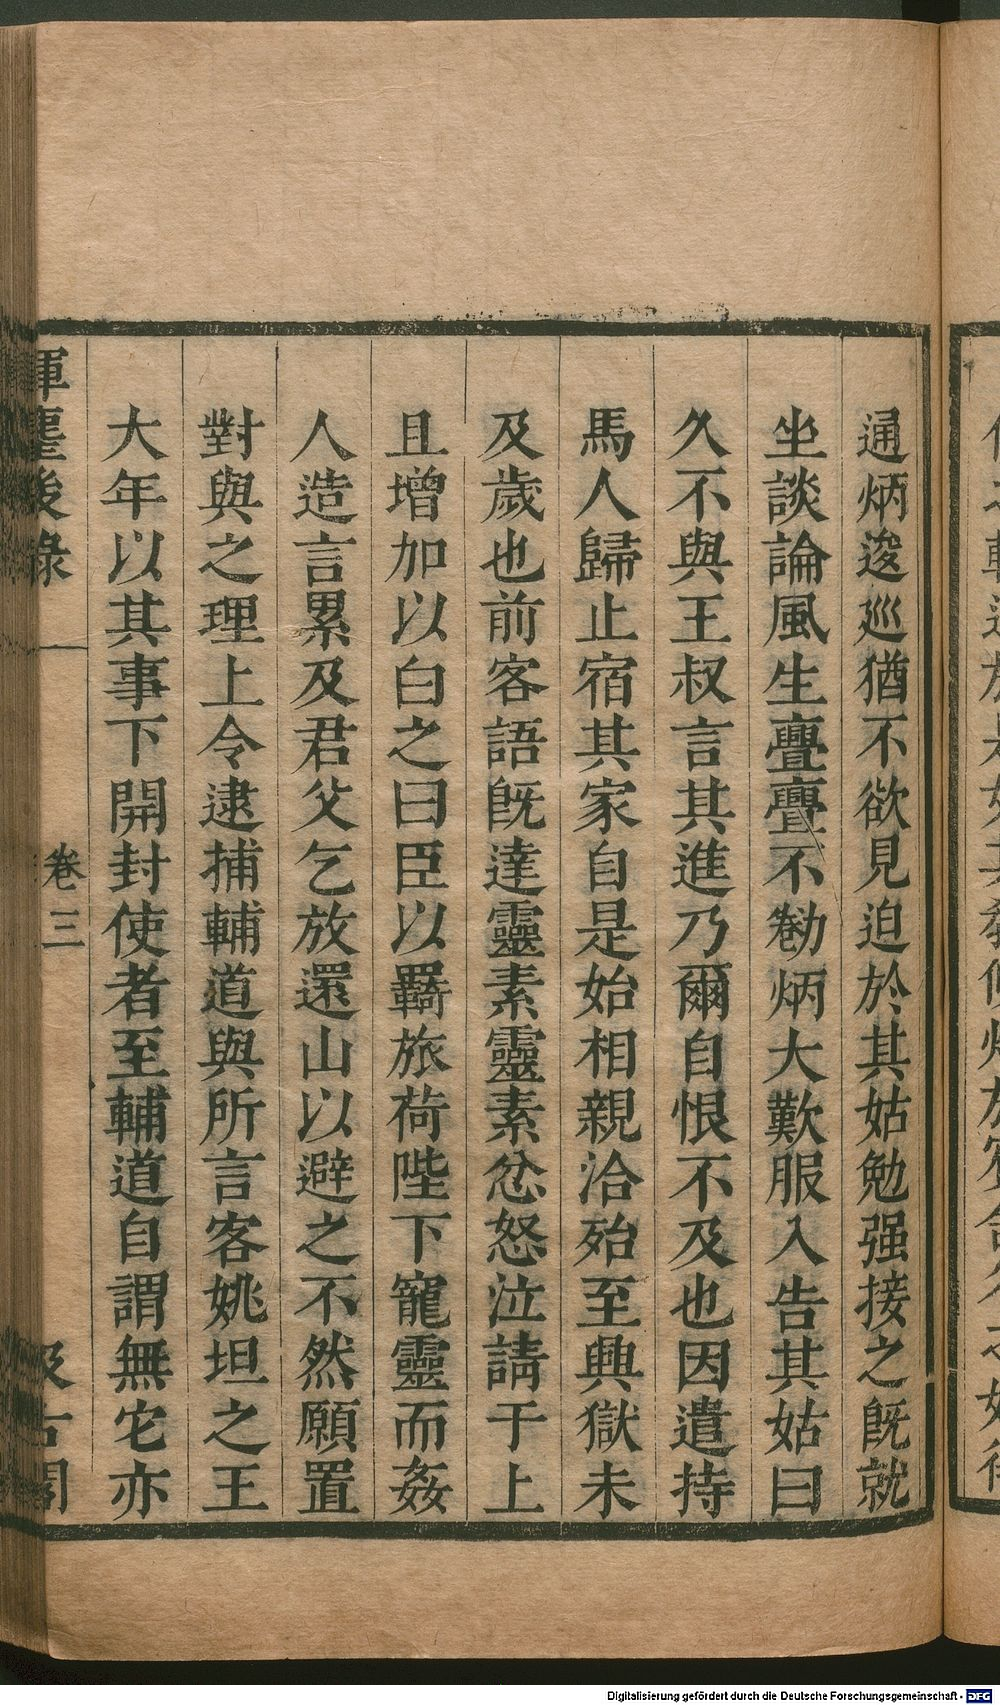 通炳逡巡猶不欲見迫於其姑勉强接之旣就
坐談論風生亹亹不勌炳大歎服入告其姑曰
久不與王叔言其進乃爾自恨不及也因遣持
馬人歸止宿其家自是始相親洽殆至興獄未
及歲也前客語旣達靈素靈素忿怒泣請于上
且增加以白之曰臣以羈旅荷陛下寵靈而姦
人造言累及君父乞放還山以避之不然願置
對與之理上令逮捕輔道與所言客姚坦之王
大年以其事下開封使者至輔道自謂無它亦
揮麈後錄 卷三 汲古閣
Digitalisierung gefördert durch die Deutsche Forschungsgemeinschaft - DFG